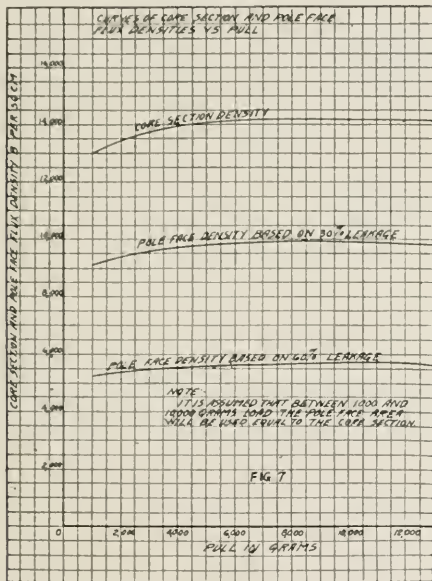 CURVES OF CORE SECTION AND POLE FACE
FLUX DENSITIES VS PULL
CORE SECTION AND POLE FACE FLUX DENSITY B PER SQ CM
16,000
14,000
CORE SECTION DENSITY
12,000
10,000
POLE FACE DENSITY BASED ON 30% LEAKAGE
8,000
6,000
POLE FACE DENSITY BASED ON 60% LEAKAGE
NOTE-
IT IS ASSUMED THAT BETWEEN 1000 AND
4,000
10,000 GRAMS LOAD THE POLE FACE AREA
WILL BE USED EQUAL TO THE CORE SECTION.
2,000
FIG 7
0
2,000 4,000 6,000 8,000 10,000 12,000
PULL IN GRAMS